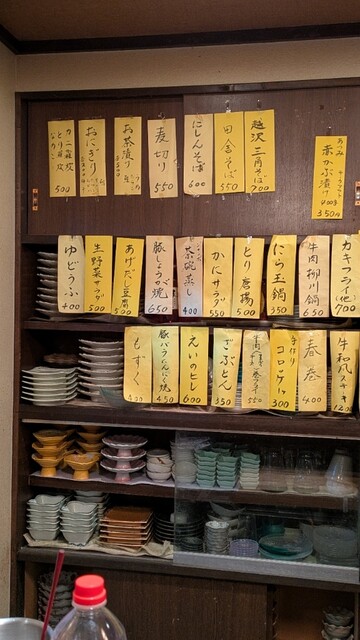 あつみ
赤かぶ漬け
350
越沢三角そば
700
田舎そば
550
にしんそば
600
麦切り
550
お茶漬り
おにぎり
カニ雑炊
とり雑炊
500
カキフライ他
700
牛肉柳川鍋
650
たら玉鍋
350
とり唐揚
500
かにサラダ
550
茶碗蒸し
400
豚しょうが焼
650
あげだし豆腐
500
生野菜サラダ
500
ゆどうふ
400
牛和風ステーキ
春巻
400
手作り
コロッケ
300
550
ざぶとん
350
えいのひれ
600
豚バラにんにく焼
450
もずく